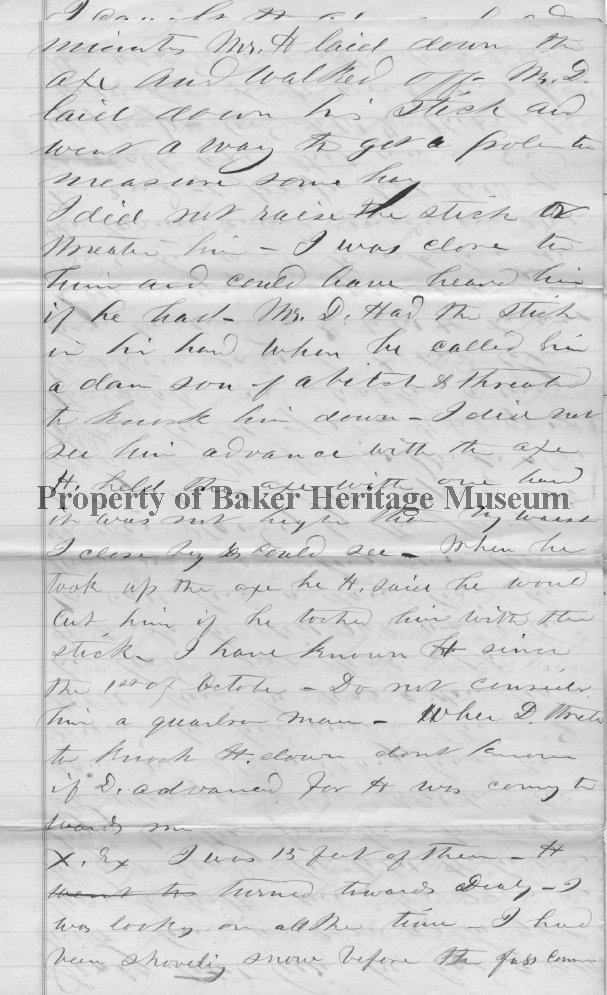 minutes Mr. H laid down the
axe and walked off - Mr. D.
laid down his stick and
went a way to get a pole to
measure some hay
I did not raise the stick or
threaten him - I was close to
him and could have heard him
if he had - Mr. D. Had the stick
in his hand when he called him
a dam son of a bitch & threated
to knock him down - I did not
see him advance with the axe
H. held the axe with one hand
Property of Baker Heritage Museum
it was not higher than my waist
I close by & could see - When he
took up the axe he H. said he would
cut him if he toched him with the
stick - I have known H since
the 1st of October - Do not consider
him a quarlson man - When D. threte
to knock H. down dont know
if D. advanced for H was coming to
wards me
X. Ex I was 15 feet of them - H
went to turned towards Dealy - I
was looky on all the time - I had
been shoveling snow before the fuss comm